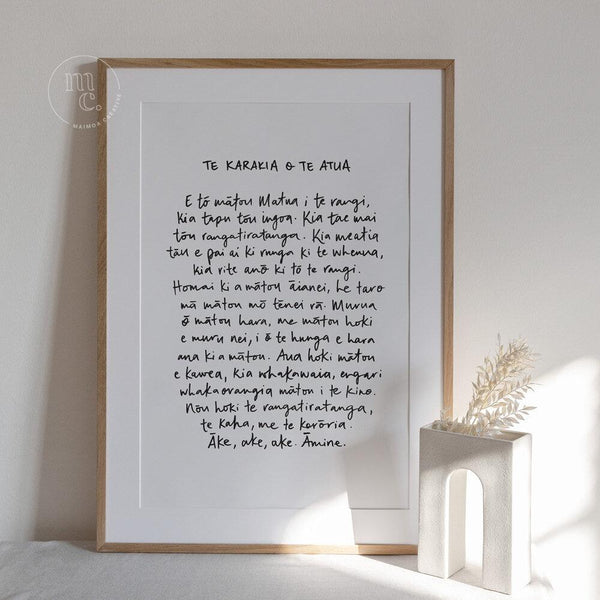 mc Co
MAIMOA CREATIVE
TE KARAKIA O TE ATUA
E tō mātou Matua i te rangi,
kia tapu tōu ingoa. Kia tae mai
tōu rangatiratanga. Kia meatia
tāu e pai ai ki runga ki te whenua,
kia rite anō ki tō te rangi.
Homai ki a mātou āianei, he taro
mā mātou mō tēnei rā. Murua
ō mātou hara, me mātou hoki
e muru nei, i ō te hunga e hara
ana ki a mātou. Aua hoki mātou
e kawea, kia whakawaia, engari
whakaorangia mātou i te kino.
Nōu hoki te rangatiratanga,
te kaha, me te korōria.
Āke, ake, ake. Āmine.